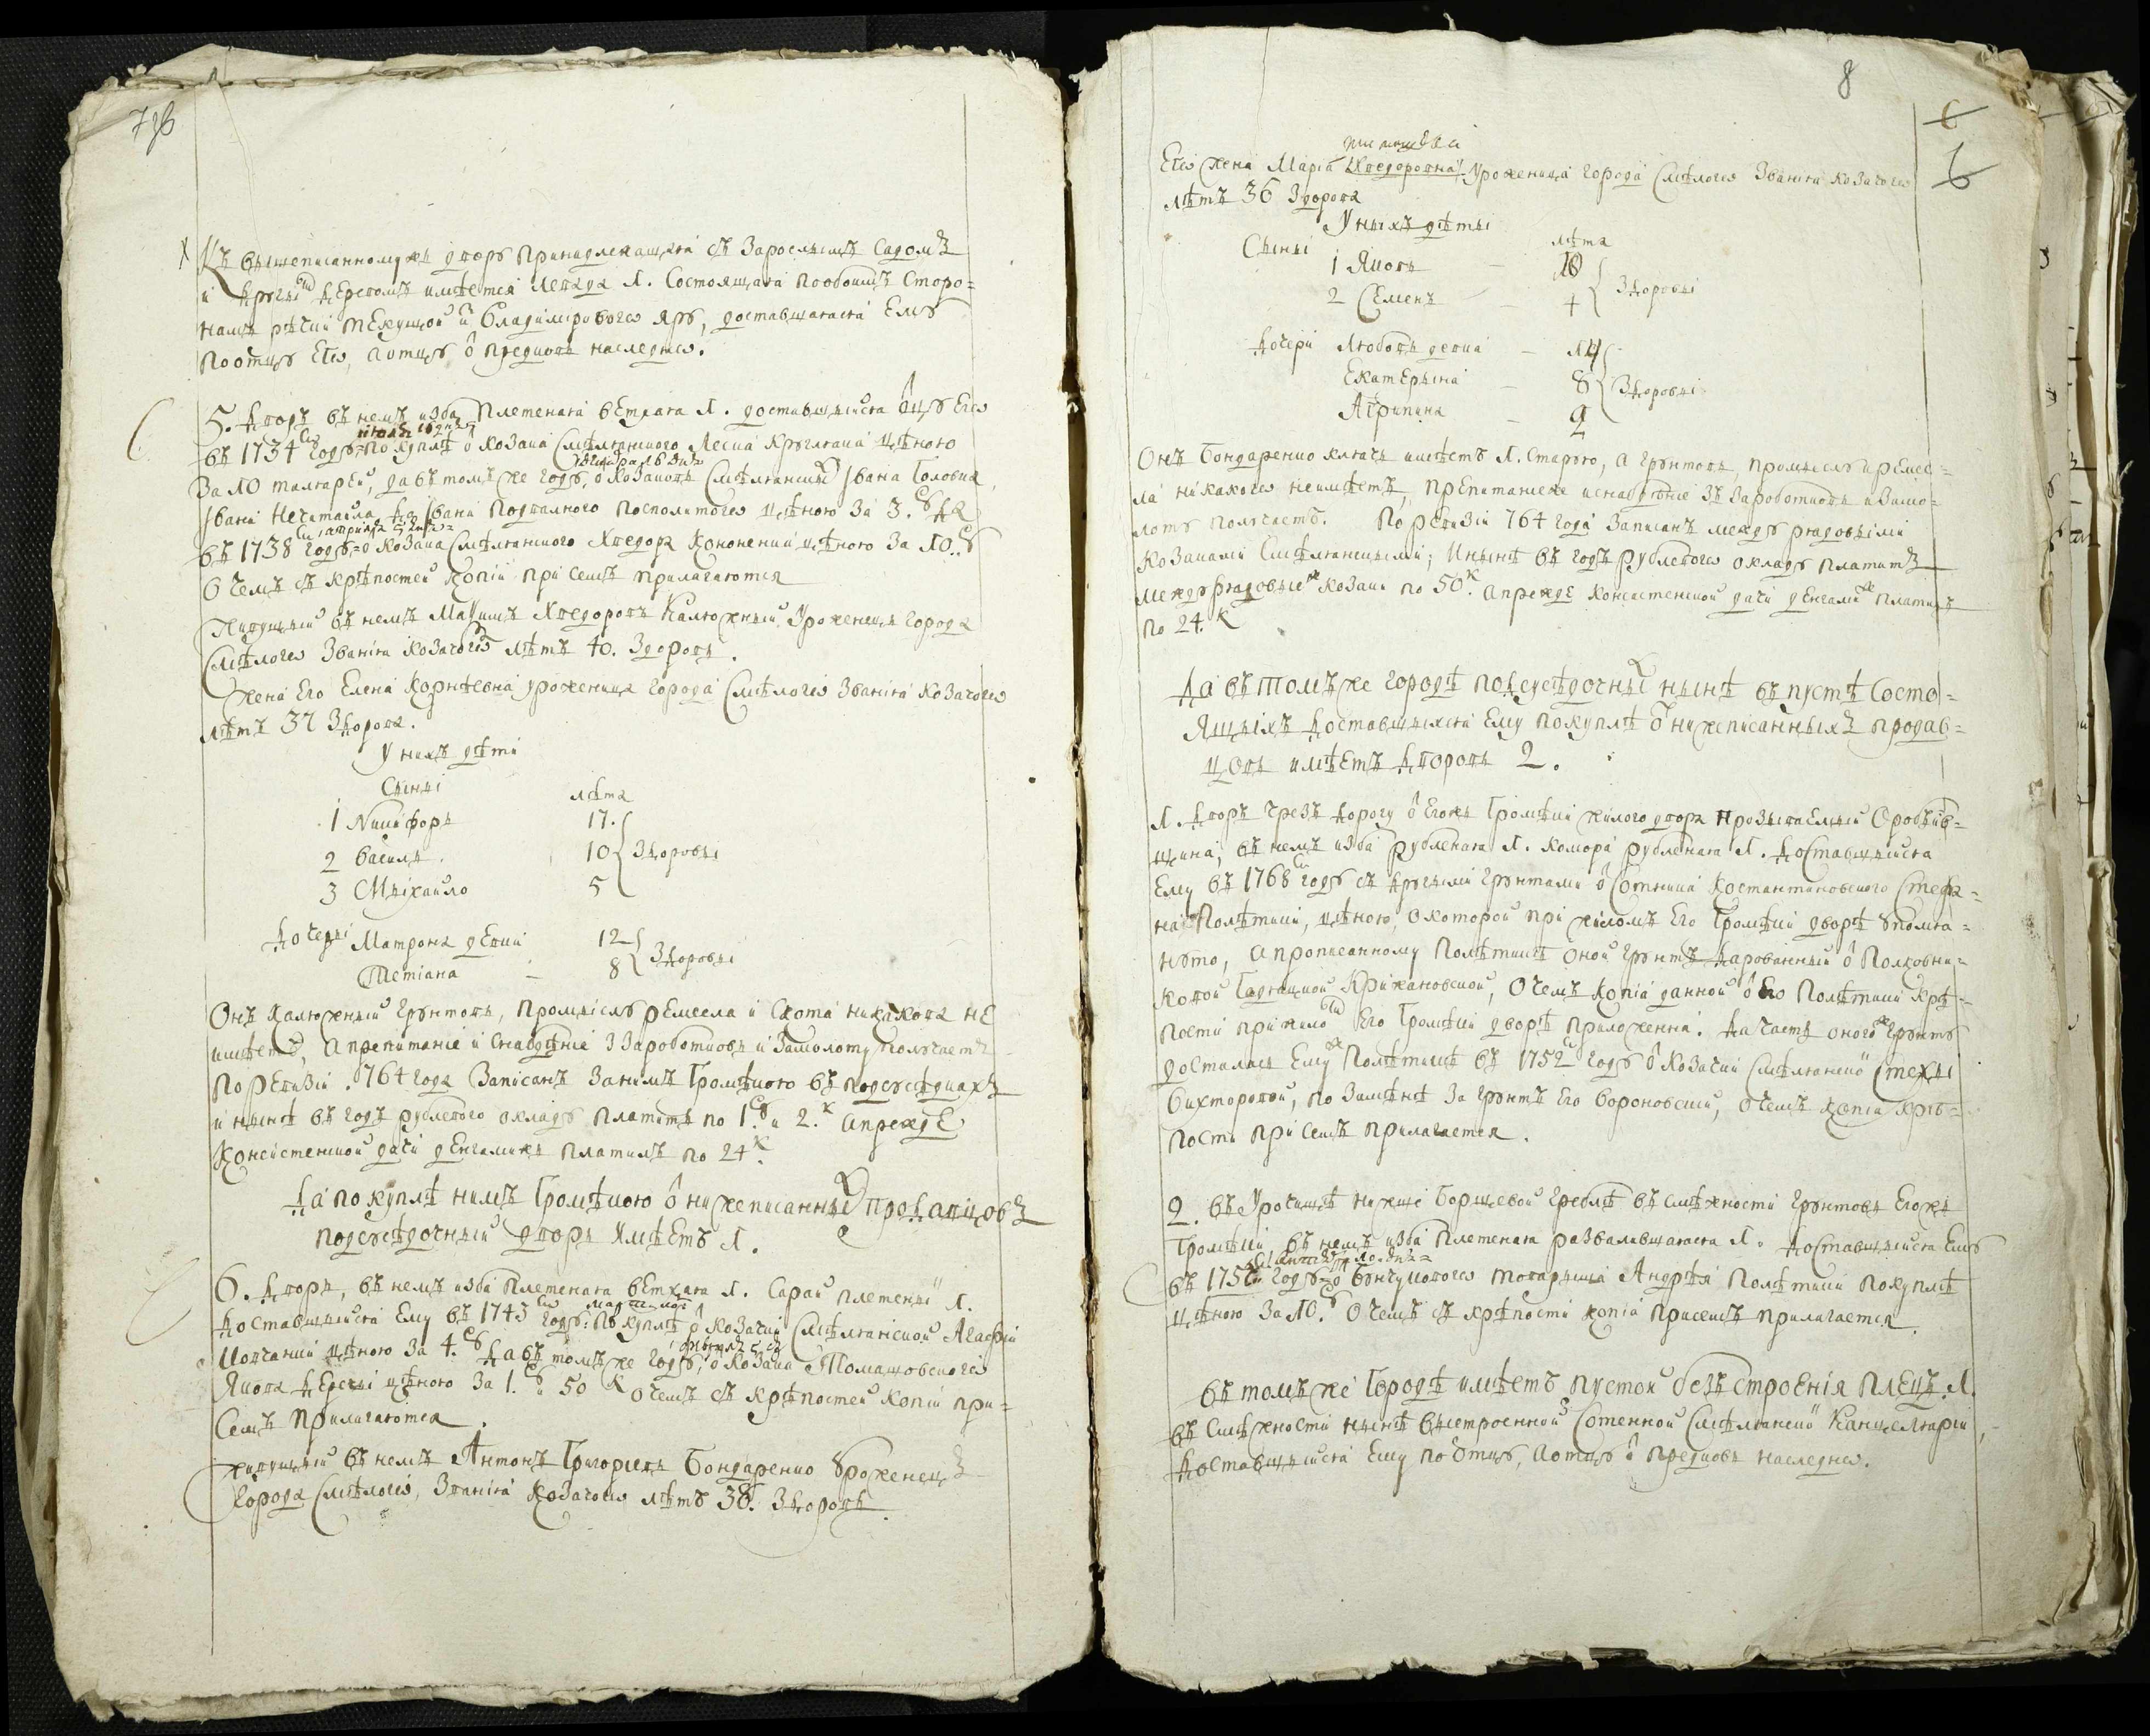 7 об
Къ вышеписанному жъ дворъ принадлежащая съ зарослымъ садомъ
и другимъ деревомъ имѣется левада 1. состоящая пообоимъ сторо=
намъ рѣчки текущой и Владимѣрового яру, доставшаяся ему
поотцу его, аотцу ѿ предковъ наследно.
5. Дворъ въ немъ изба плетеная ветхая 1. доставшыйся ѿцу его
въ 1734 году по куплѣ ѿ козака смѣлянского Леска Кругляка цѣною
за 10 талярей, да въ томъ же году, ѿ козаковъ смѣлянскихъ Ивана Головка,
Ивана Нечитайла да Ивана Подвалного посполитого цѣною за 3. р да
въ 1738 году ѿ козака смѣлянского Хведора Кононенка цѣною за 10. р
о чемъ съ крѣпостей копіи при семъ прилагаются
Живущый въ немъ Макимъ Хведоровъ Калюжный уроженецъ города
Смѣлого званія козачого лѣтъ 40. здоровъ.
Жена его Елена Корнѣевна уроженица города Смѣлого званія козачого
лѣтъ 37 здорова.
У нихъ дѣти
Сыны лѣта
1 Никифоръ 17.
2 Василь 10 здоровы
3 Михайло 5
Дочери Матрона девки 12
Тетіана – 8 здоровы
Онъ Калюжный грунтовъ, промыслу ремесла и скота никакова не
имѣетъ, апрепитаніе и снабдѣніе з заработковъ и замолоту получаетъ
по ревизіи 764 года записанъ занимъ Громѣкою въ подсусѣдкахъ
и нынѣ въ годъ рублевого окладу платитъ по 1. р и 2. к апрежде
консистенской дачи денгамижъ платилъ по 24 к.
Да покуплѣ нимъ Громѣкою ѿ нижеписанныхъ продавцовъ
подсусѣдочный дворъ имѣетъ 1.
6. Дворъ, въ немъ изба плетеная ветхая 1. сарай плетений 1.
доставшыйся ему въ 1743 году по куплѣ ѿ козачки смѣлянской Агафіи
цѣною за 4. р да въ томъ же году, ѿ козака Томашовского
Якова цѣною за 1. р и 50 к о чемъ съ крѣпостей копіи при=
семъ прилагаются.
Живущый въ немъ Антонъ Григорьевъ Бондаренко уроженецъ
города Смѣлого, званія козачого лѣтъ 38. здоровъ.
8
6
Его жена Марія Хведоровна уроженица города Смѣлого званія козачого
лѣтъ 36 здорова
У нихъ дѣти
Сыны лѣта
1 Яковъ – 10
2 Семенъ – 4 здоровы
Дочери Любовъ девка – 14
Екатерына – 8 здоровы
Агрипина – 2
Онъ Бондаренко клячъ имѣетъ 1. старого, а грунтовъ, промыслу иремес=
ла никакого неимѣетъ, препитаніеже иснабдѣніе зъ заработковъ изамо=
лоту получаетъ. По ревизіи 764 года записанъ между рядовыми
козаками смѣлянскыми; инынѣ въ годъ рублевого окладу платитъ
между рядовыемижъ козаки по 50. к апрежде консистенской дачи денгамижъ платилъ
по 24. к
Да въ томъ же городѣ подсусѣдочныхъ нынѣ въ пустѣ состо=
ящыхъ доставшыхся ему покуплѣ ѿ нижеписанныхъ продав=
цовъ имѣетъ дворовъ 2.
1. Дворъ чрезъ дорогу ѿ егожъ Громѣки жилого двора прозываемый
щина, въ немъ изба рубленая 1. комора рубленая 1. доставшыйся
ему въ 1768 году съ другыми грунтами ѿ сотника костантиновского Стефа=
на Полѣтики, цѣною, окоторой при жиломъ его Громѣки дворѣ упомя=
нуто, апрописанному Полѣтикѣ оной грунтъ дарованный ѿ полковни=
ковой Гадяцкой Крижановской, о чемъ копія данной ѿ его Полѣтики крѣ=
пости прижиломъ его Громѣки дворѣ приложенна. Да часть оногожъ грунту
досталась емужъ Полѣтикѣ въ 1752 году ѿ козачки смѣлянской Стехи
Бихторовой, по замѣнѣ за грунтъ его Вороновский, о чемъ копія крѣ=
пости при семъ прилагается.
2. въ урочищѣ нижше Борщевой греблѣ въ смѣжности грунтовъ егожъ
Громѣки въ немъ изба плетеная развалившаяся 1. доставшыйся ему
въ году ѿ бунчукового товарыша Андрѣя Полѣтики покуплѣ
цѣною за 10. р о чемъ съ крѣпости копія присемъ прилагается.
Въ томъ же городѣ имѣетъ пустой безъ строенія плецъ 1.
въ смѣжности нынѣ выстроенной сотенной смѣлянской канцеляріи,
доставшыйся ему по отцу, аотцу ѿ предковъ наследно.